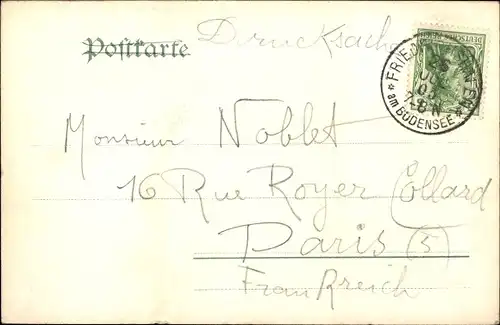 Postkarte Drucksache
DEUTSCHES REICH
* FRIEDRICHSHAFEN *
am BODENSEE
7-8 N
Monsieur Noblet
16 Rue Royer Collard
Paris (5)
Frankreich